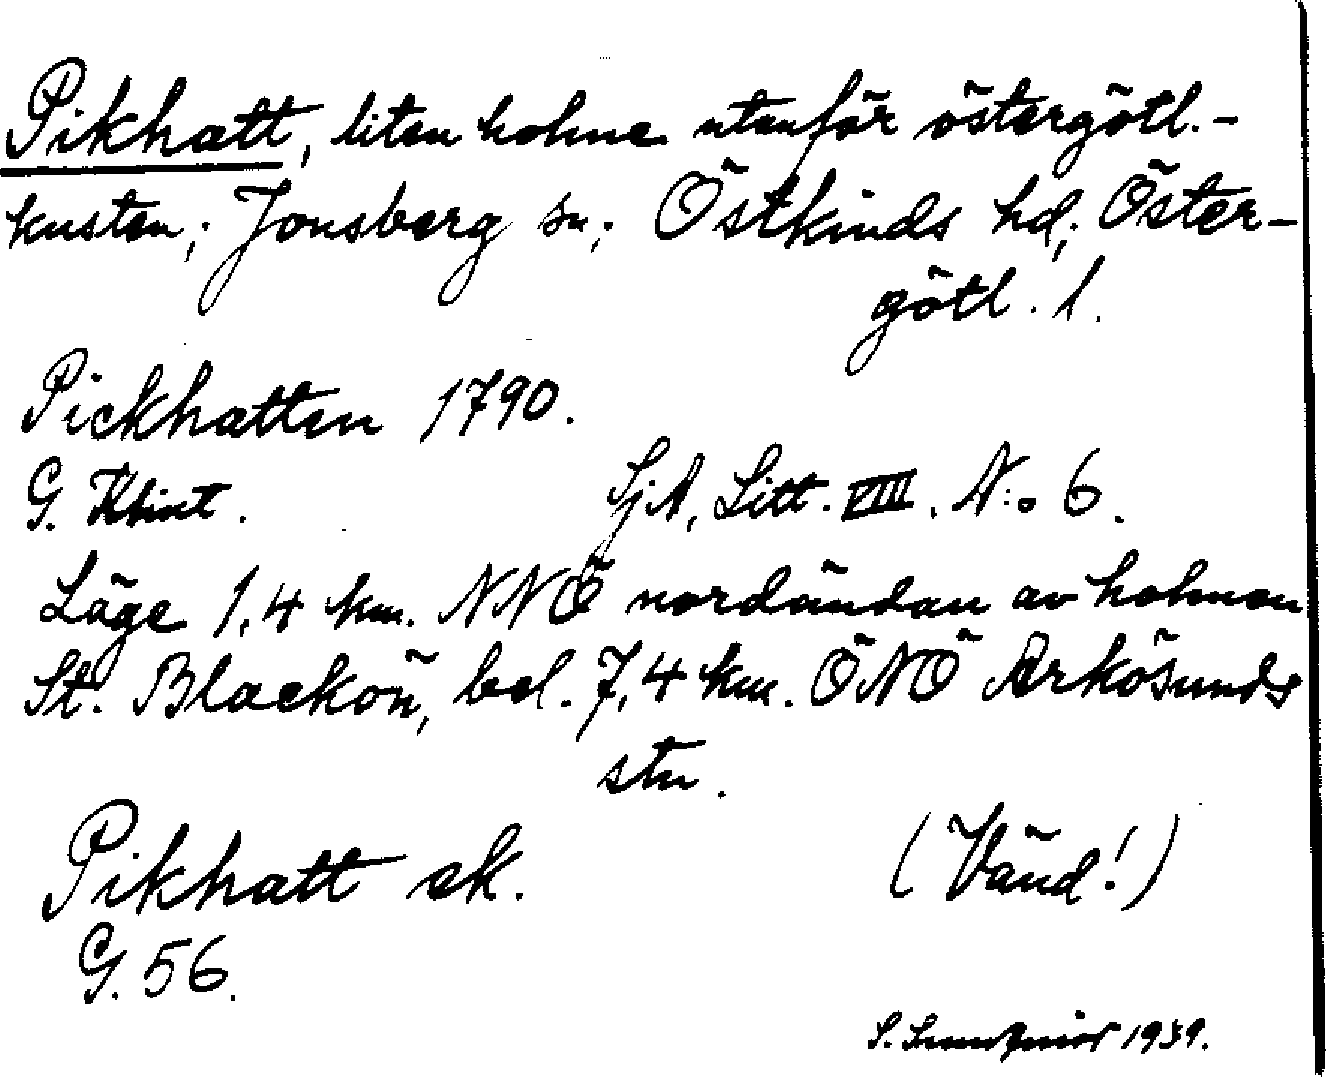 Pikhatt, liten holme utanför östergötl.-
kusten; Jonsberg sn; Östkinds hd; Öster-
götl. l.
Pickhatten 1790.
G. Klint. SjA, Litt. VIII. N:o 6.
Läge 1,4 km. NNÖ nordändan av holmen
St. Blackön, bel. 7,4 km. ÖNÖ Arkösunds
stn.
Pikhatt ek.
(Vänd!)
G. 56.
S. 1939.